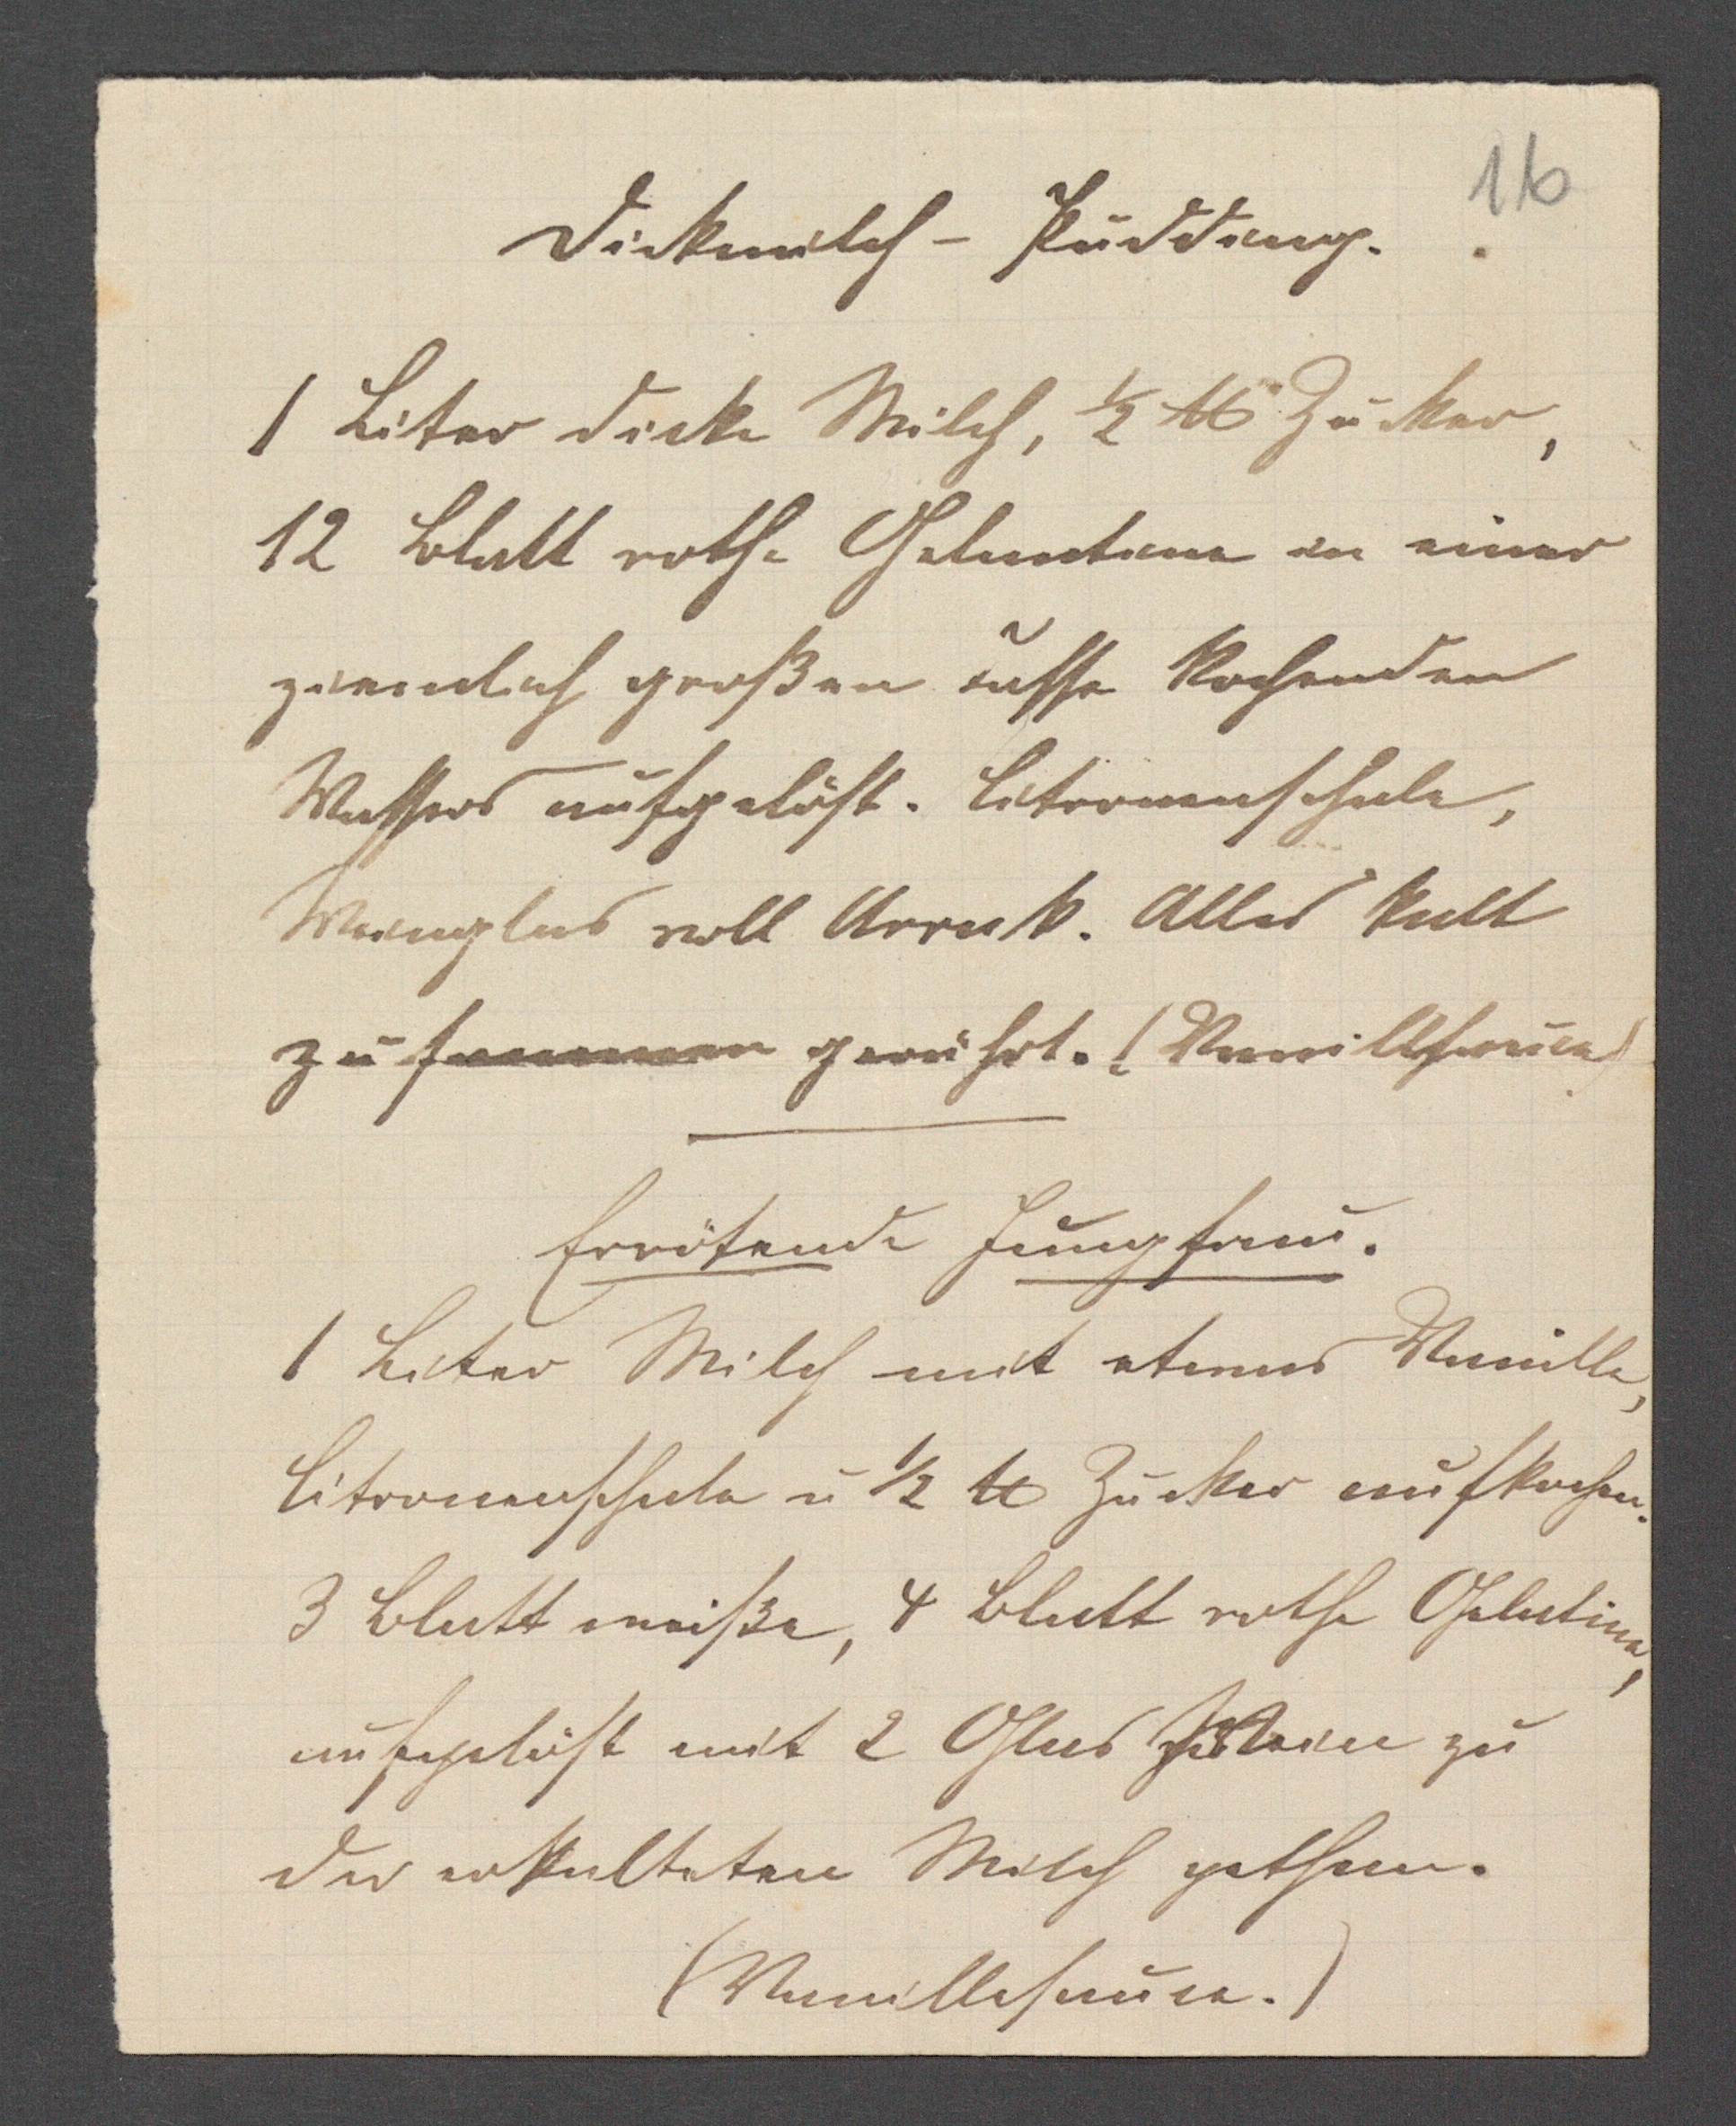 16
Dickmilch - Pudding.
1 Liter dicke Milch, ½ ℔ Zucker,
12 Blatt rothe Gelantine in einer
ziemlich großen Tasse kochenden
Wassers aufgelöst. Citronenschale,
Weinglas voll Arrak. Alles kalt
zusammen gerührt. (Vanillsauce)
Errötende Jungfrau.
1 Liter Milch mit etwas Vanille,
Citronenschale u ½ ℔ Zucker aufkochen.
3 Blatt weiße, 4 Blatt rothe Gelatine,
aufgelöst mit 2 Glas Wein zu
der erkalteten Milch gethan.
(Vanillesauce.)